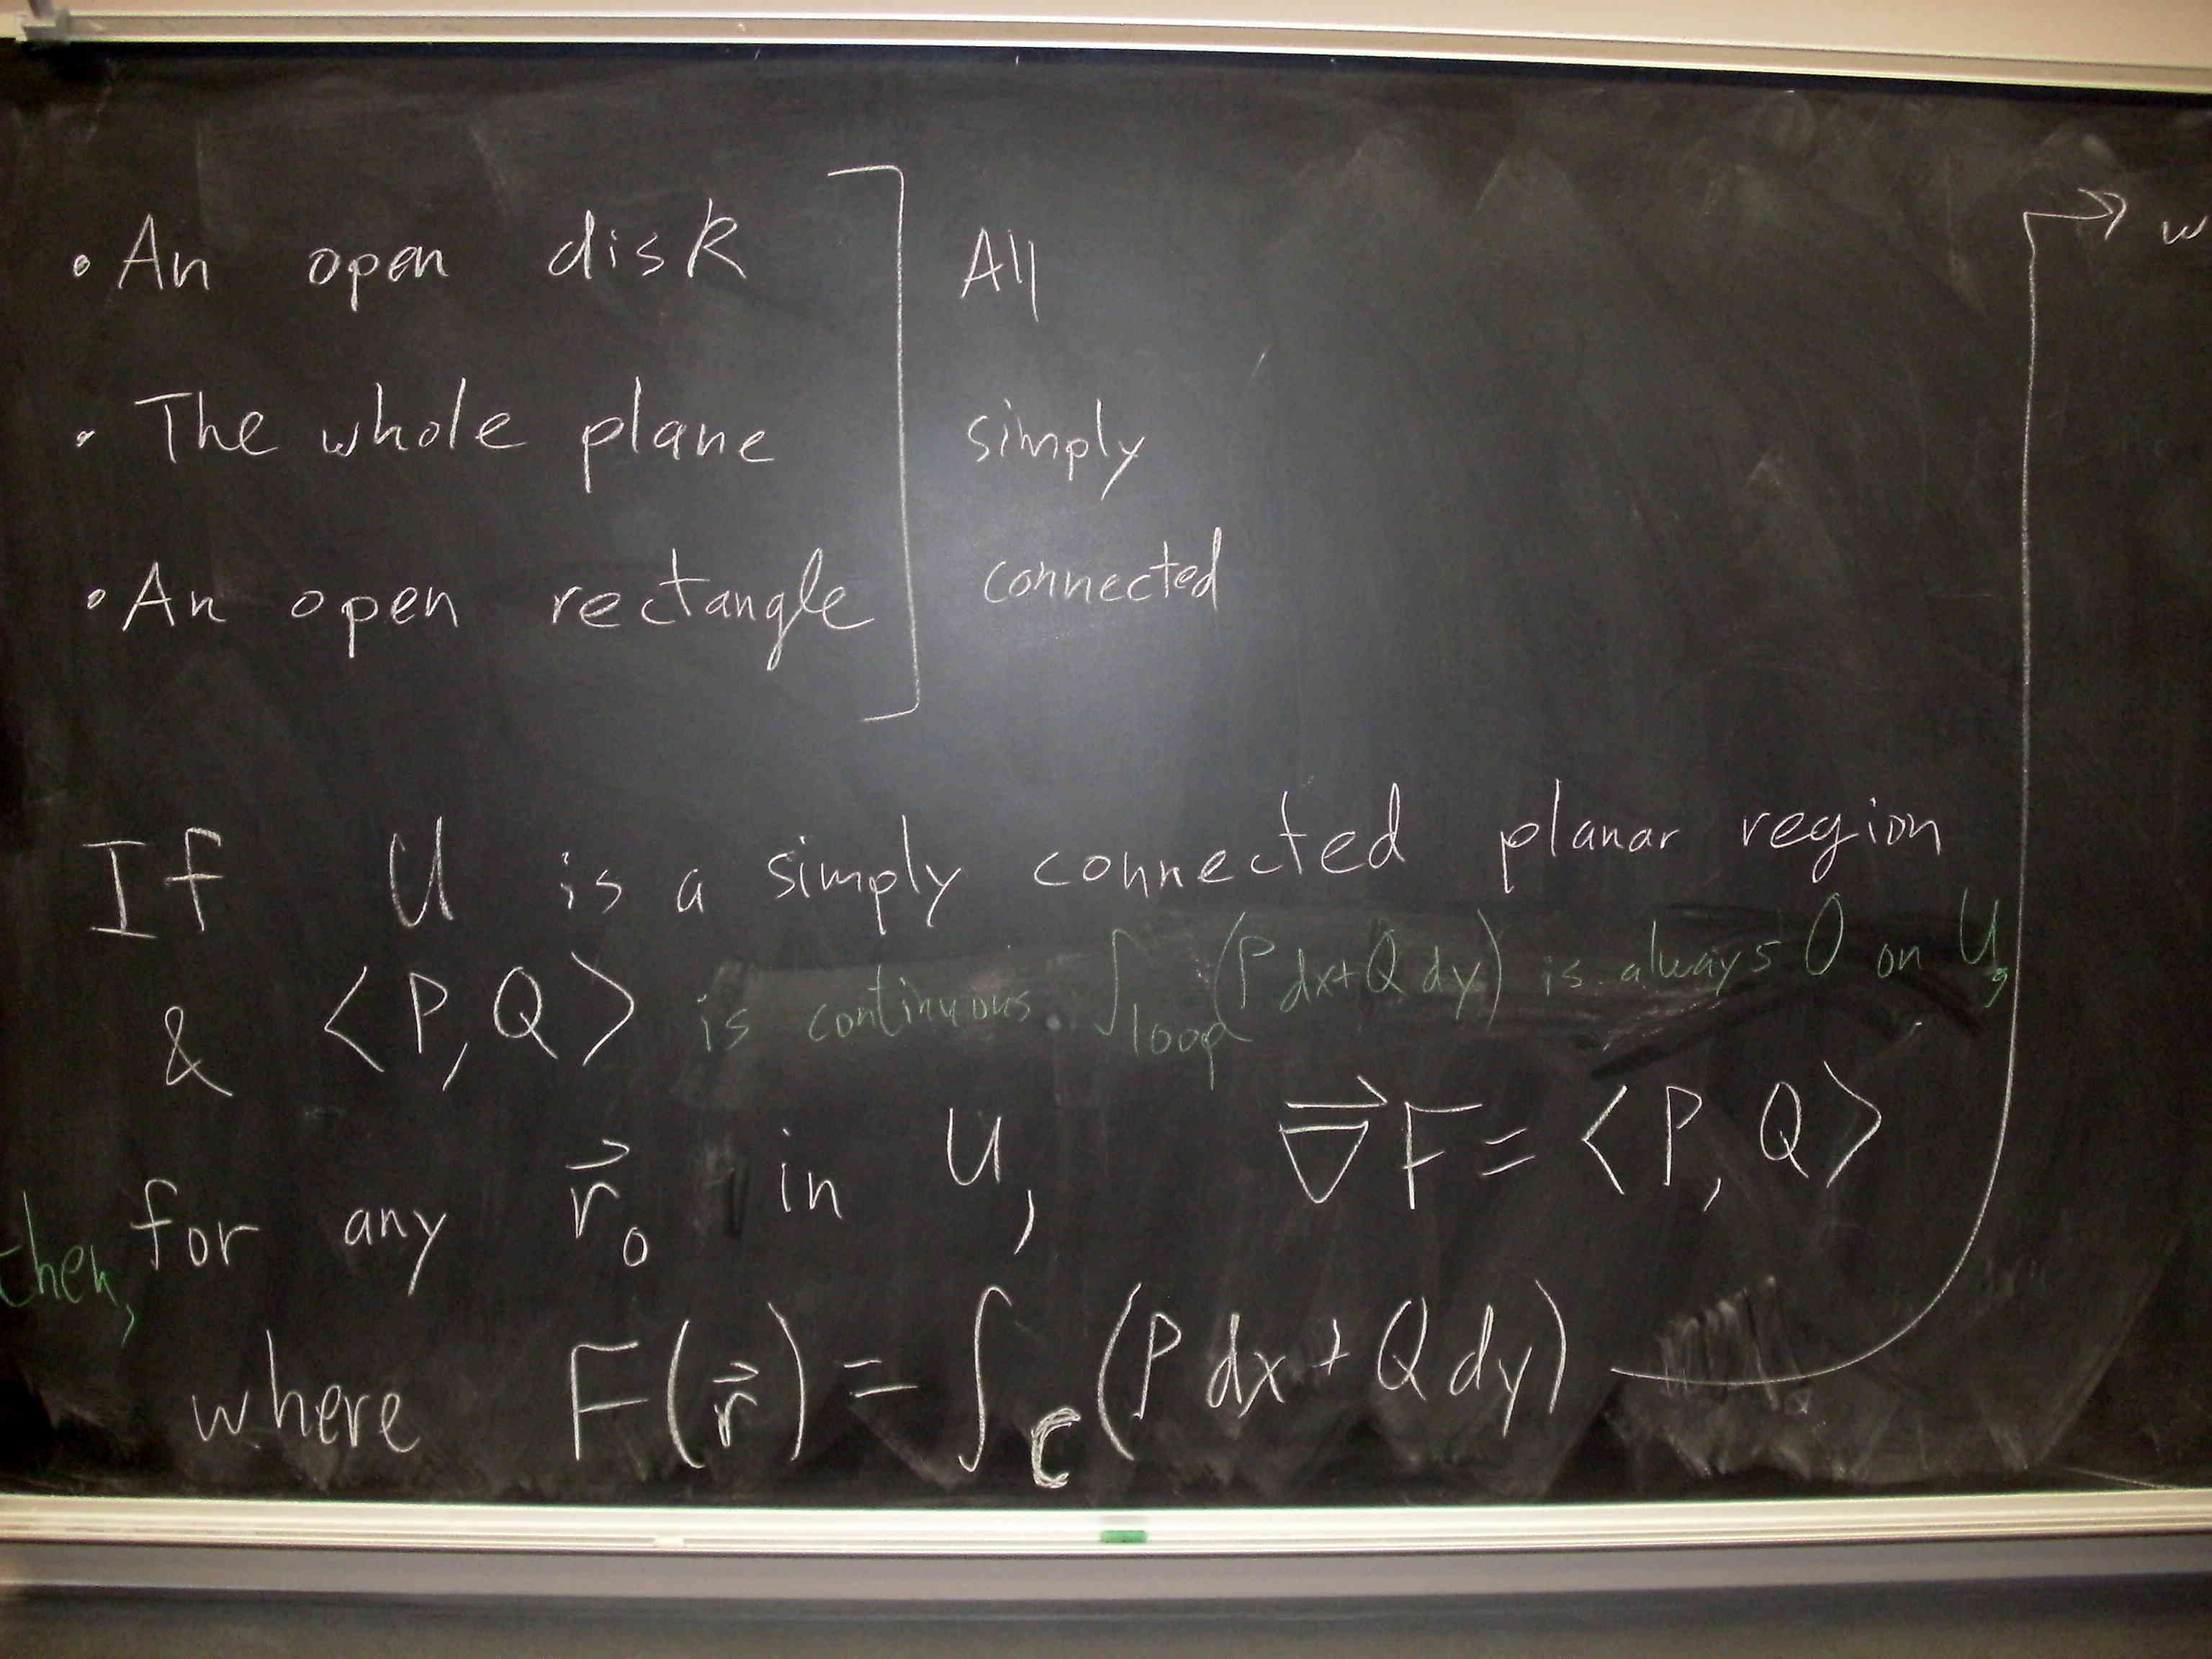 • An open disk
All
• The whole plane
simply
• An open rectangle
connected
w
If U is a simply connected planar region
& ⟨P, Q⟩ is continuous ∫loop (P dx + Q dy) is always 0 on U,
then, for any r⃗₀ in U, ∇⃗F = ⟨P, Q⟩
where F(r⃗) = ∫C (P dx + Q dy)